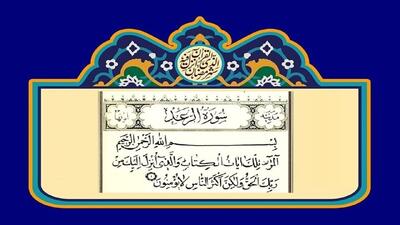 مدنية سُورَةُ الرَّعْد
بِسْمِ اللهِ الرَّحْمٰنِ الرَّحِيمِ
المر تِلْكَ ايَاتُ الْكِتَابِ وَالَّذِى اُنْزِلَ اِلَيْكَ مِنْ
رَبِّكَ الْحَقُّ وَلٰكِنَّ اَكْثَرَ النَّاسِ لَا يُؤْمِنُونَ